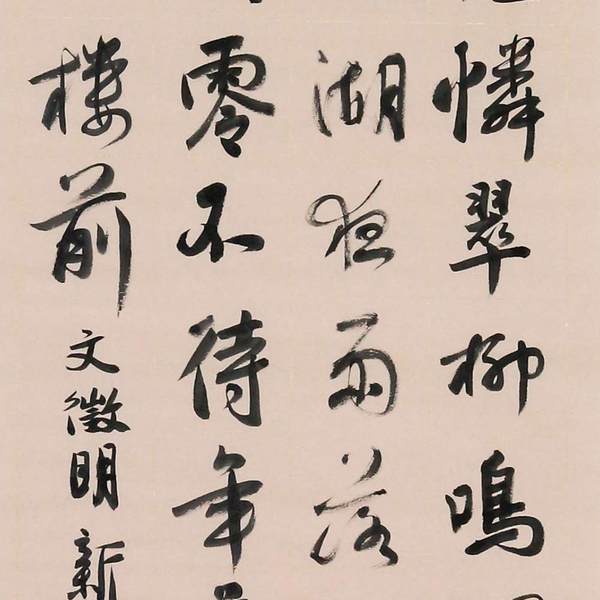 憐翠柳鳴
湖夜雨落
零不待年
樓前 文徵明 新